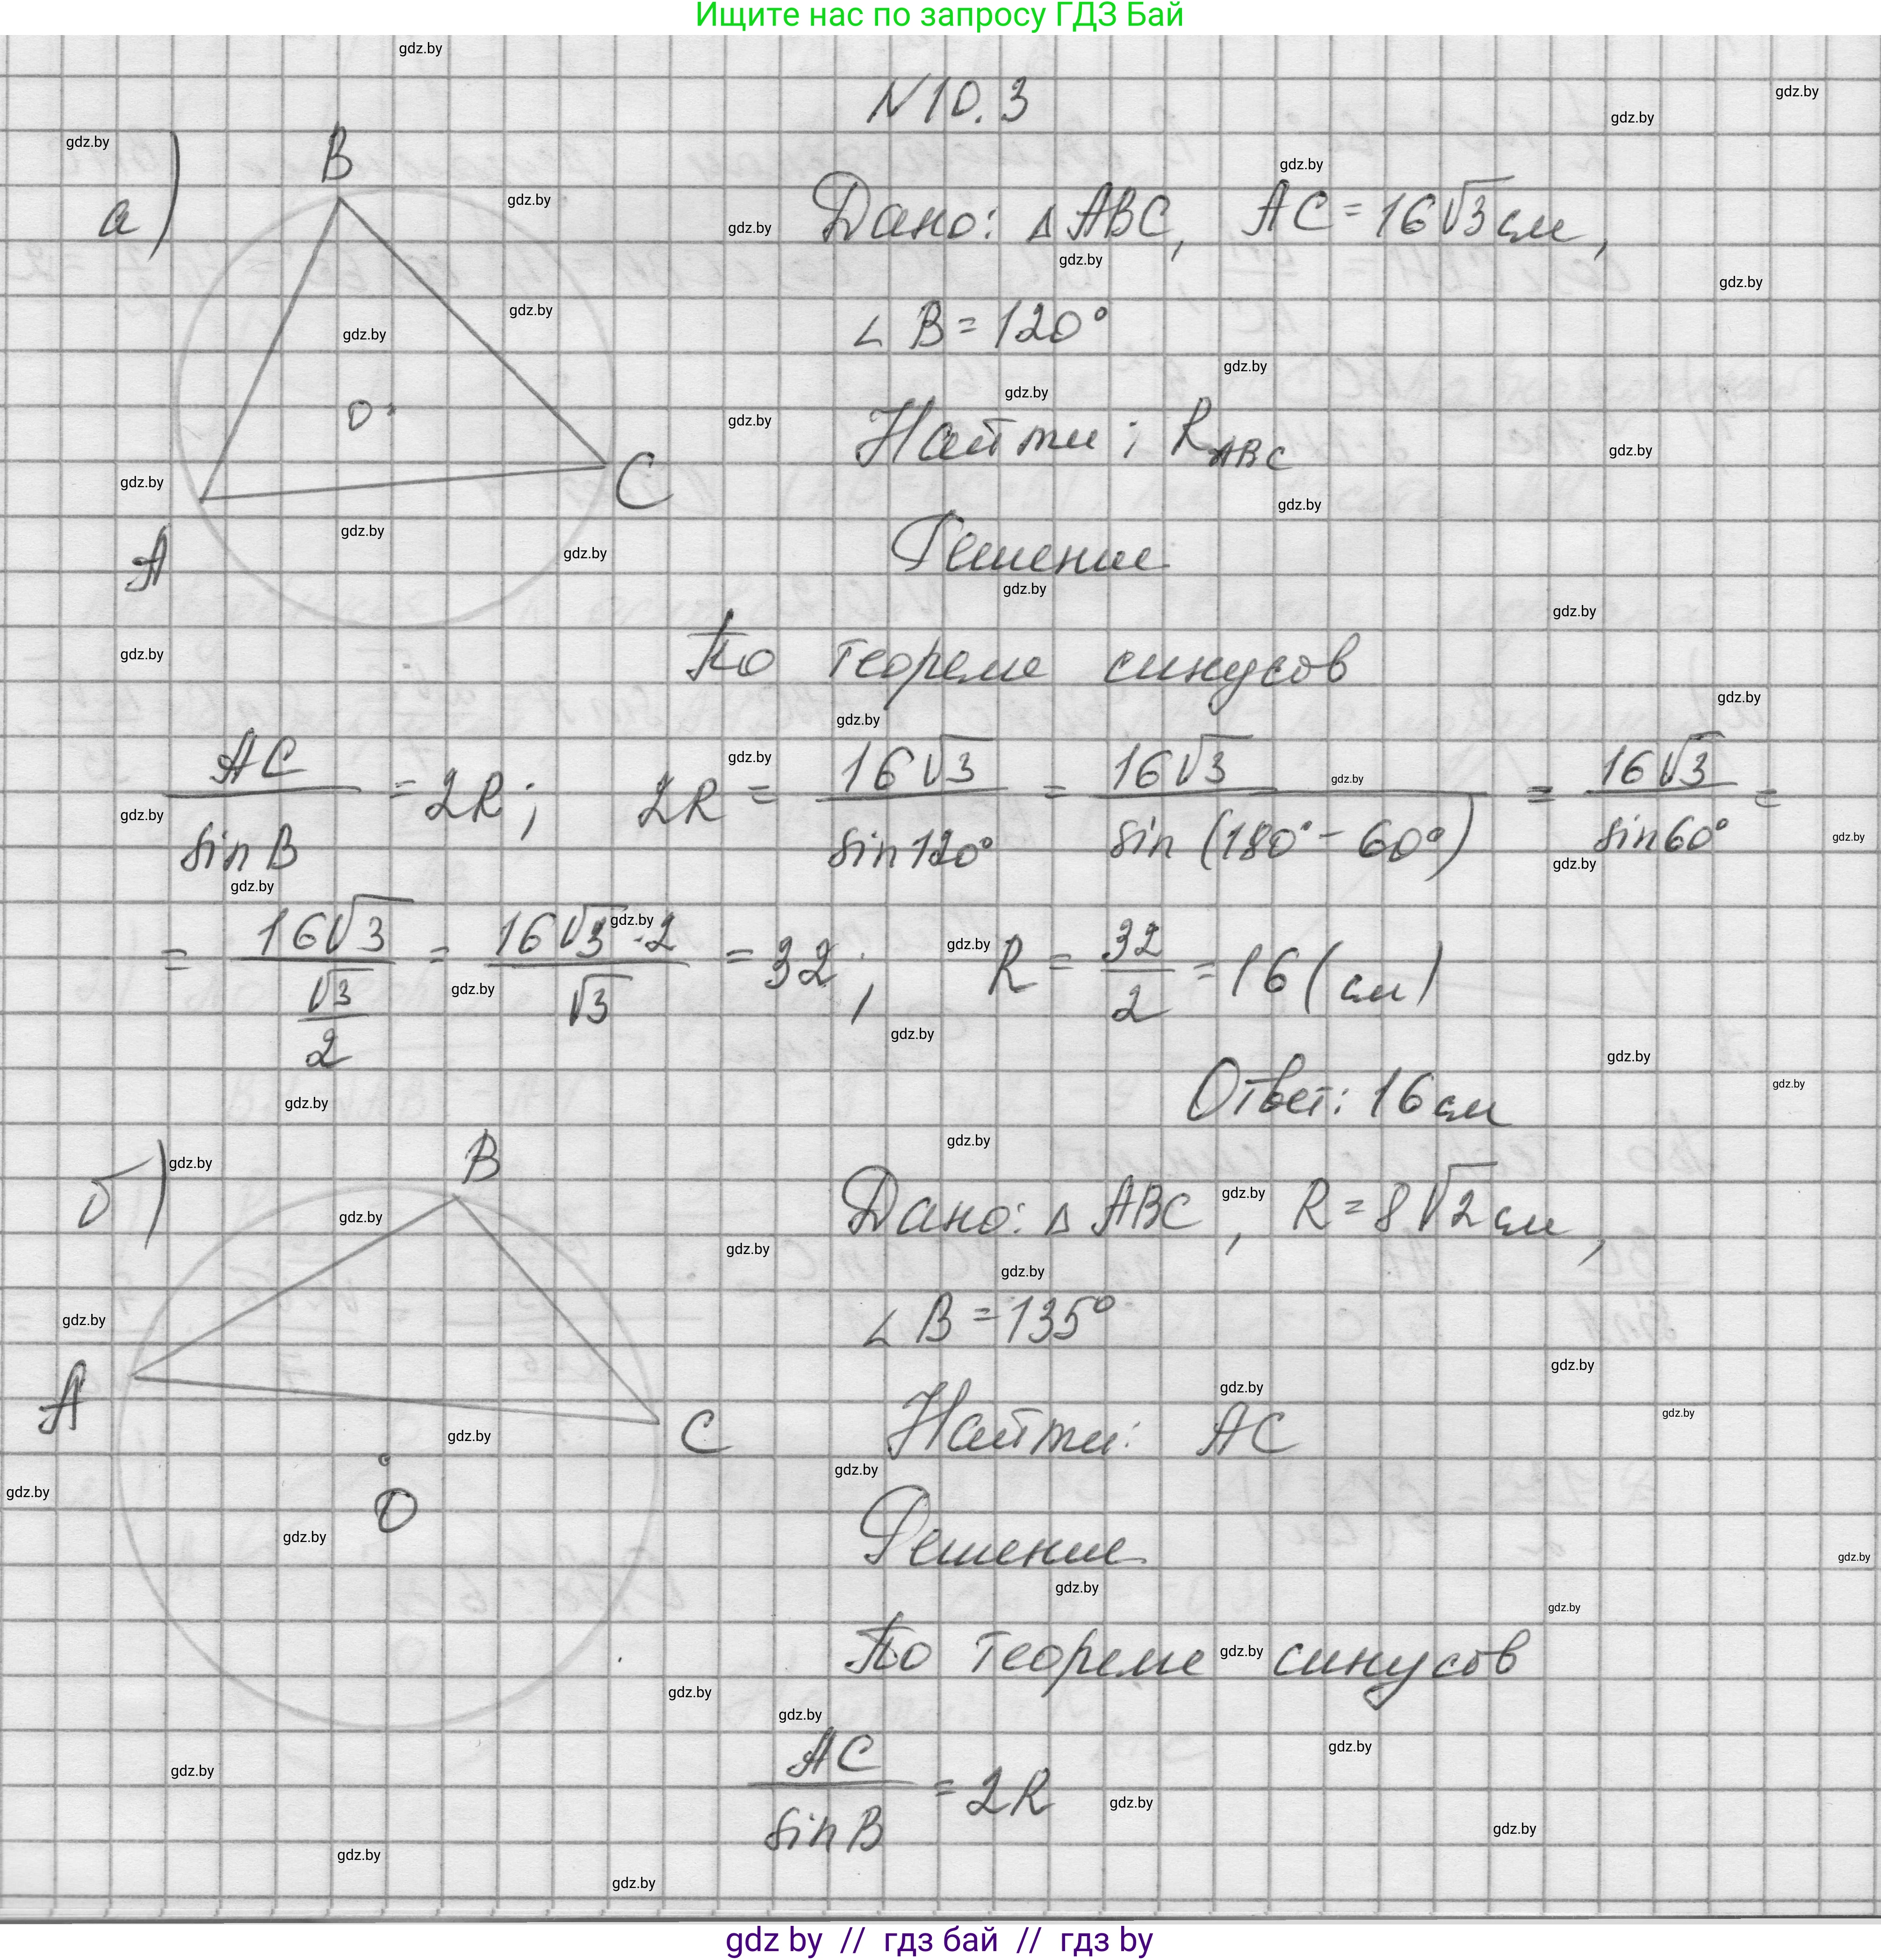 Ищите нас по запросу ГДЗ Бай
N 10.3
а)
B
O
A
C
Дано: △ABC, AC = 16√3 см,
∠B = 120°
Найти: R_ABC
Решение
По теореме синусов
AC / sin B = 2R; 2R = 16√3 / sin 120° = 16√3 / sin (180° − 60°) = 16√3 / sin 60° =
= 16√3 / (√3 / 2) = 16√3 · 2 / √3 = 32; R = 32 / 2 = 16 (см)
Ответ: 16 см
б)
B
A
C
O
Дано: △ABC, R = 8√2 см,
∠B = 135°
Найти: AC
Решение
По теореме синусов
AC / sin B = 2R
gdz.by
gdz by // гдз бай // гдз by